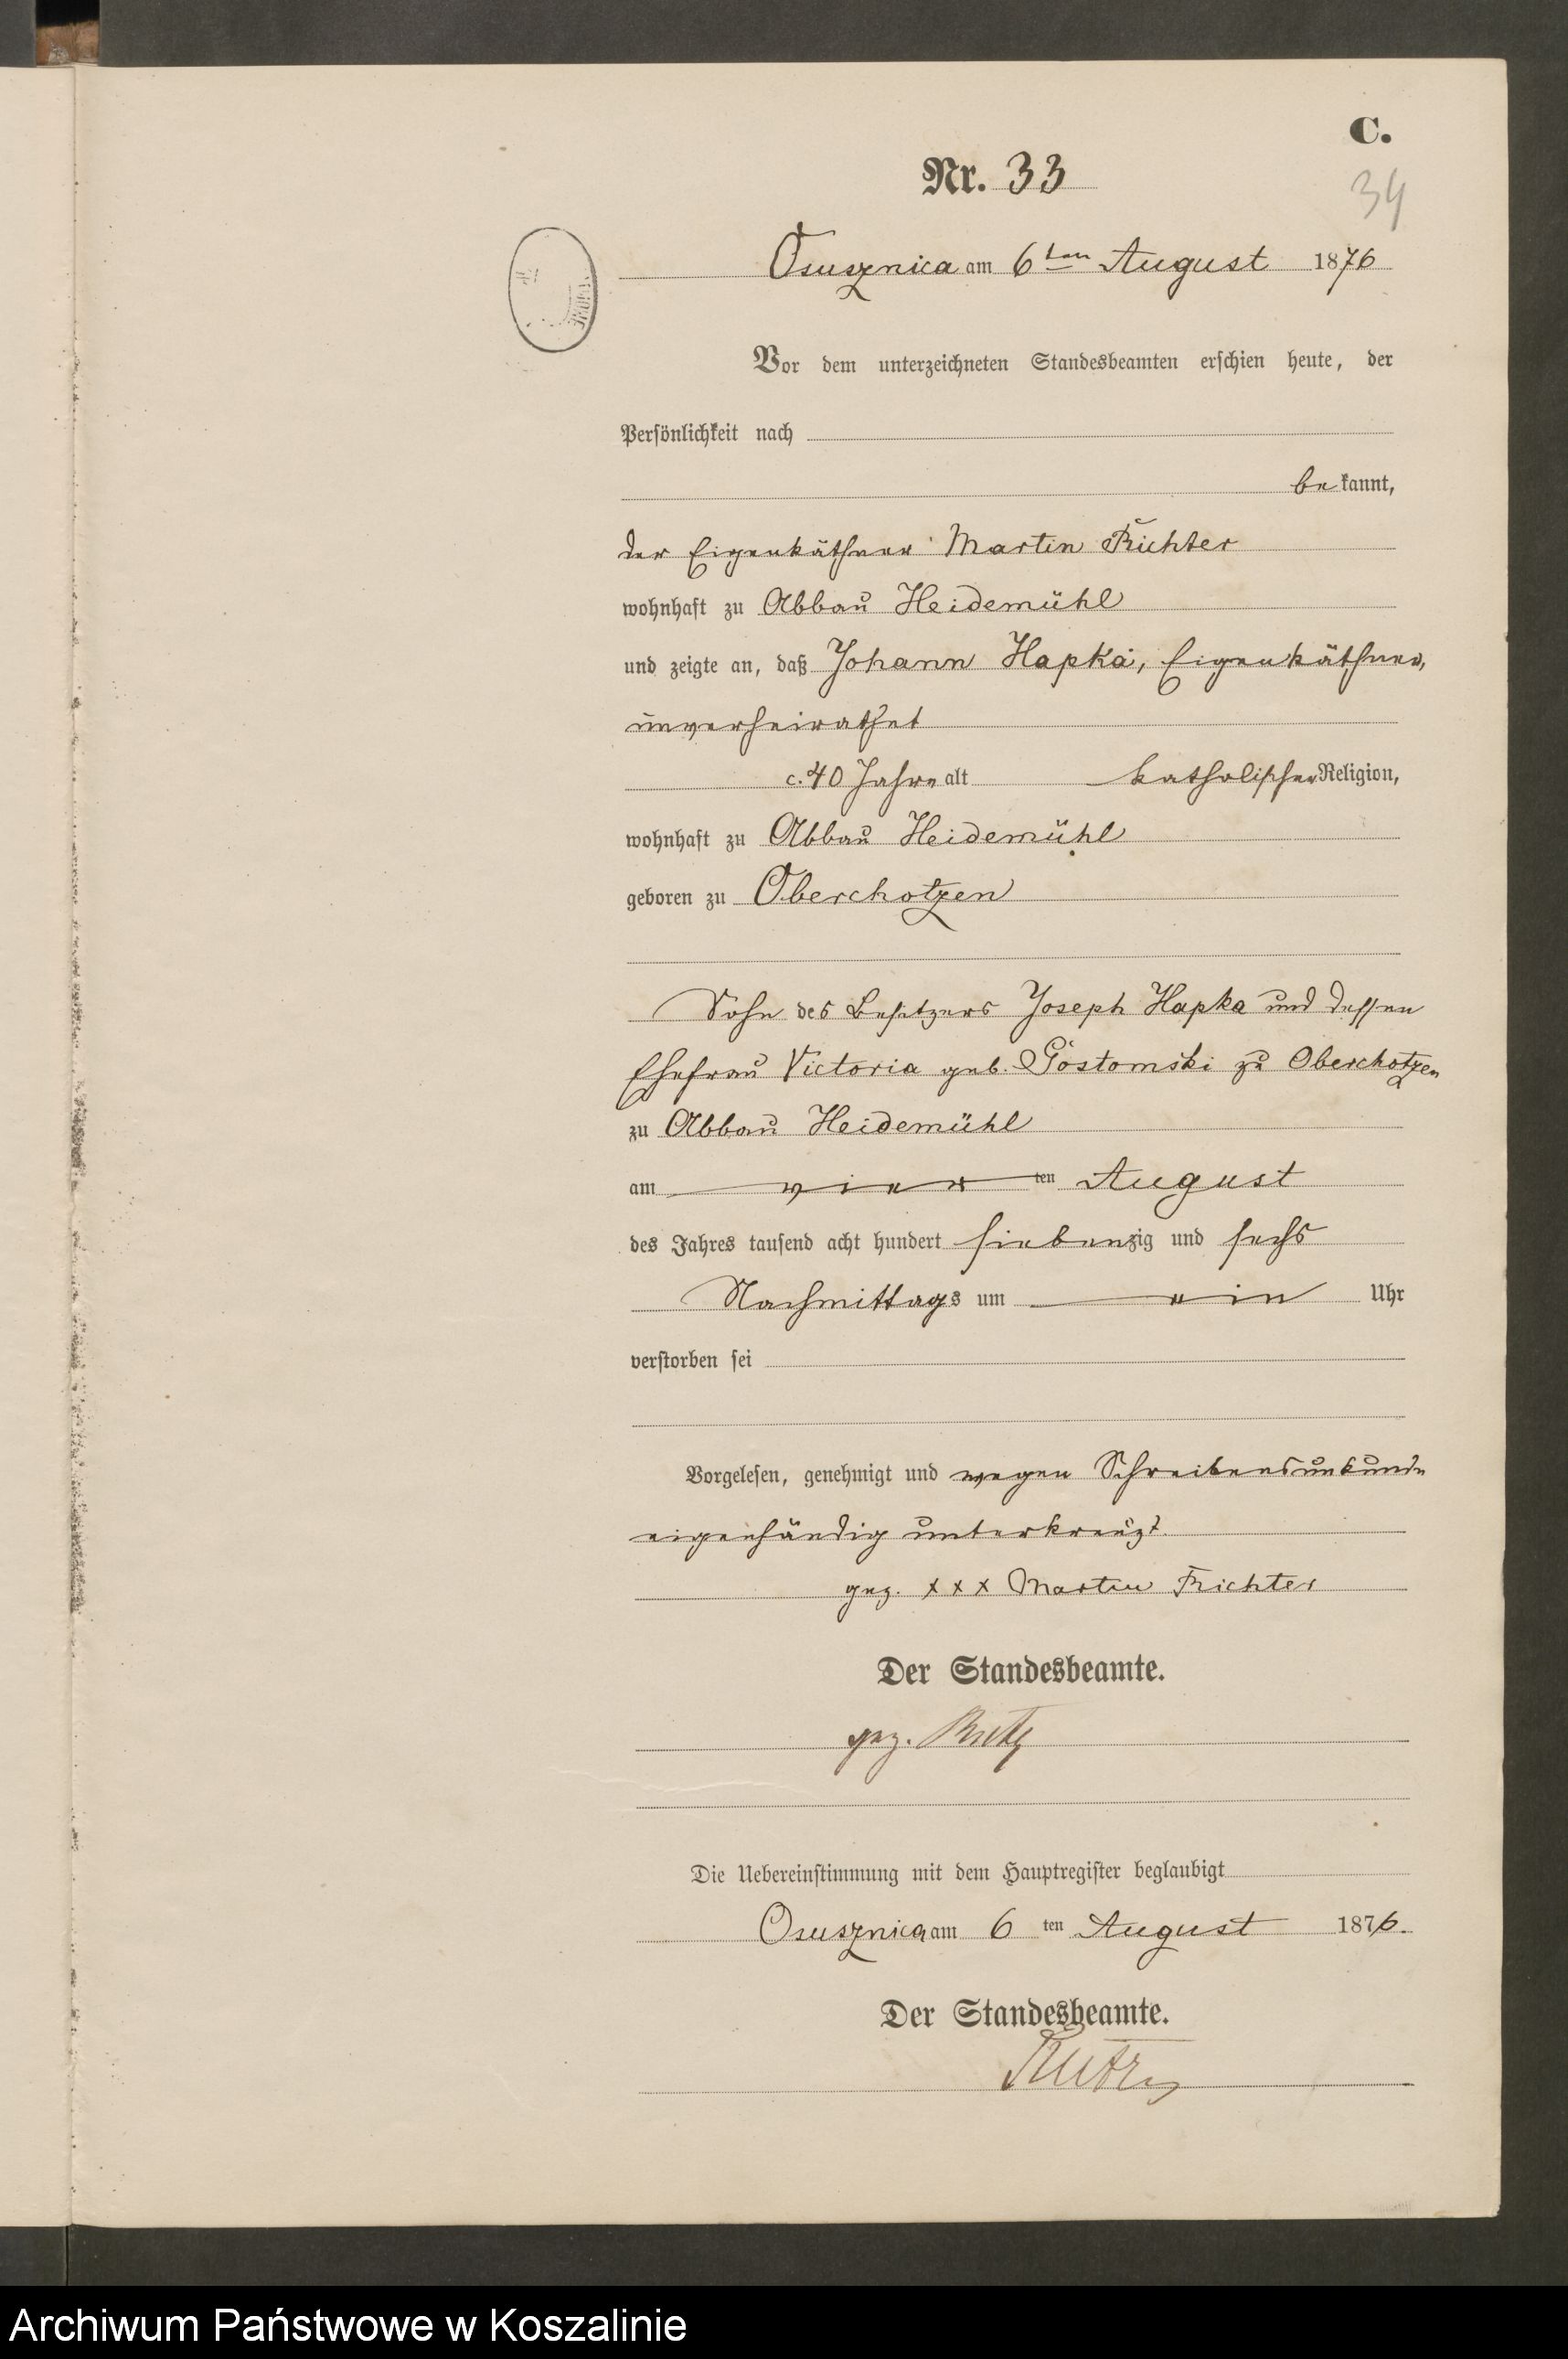 C.
Nr. 33
34
Osusznica am 6ten August 1876
Vor dem unterzeichneten Standesbeamten erschien heute, der
Persönlichkeit nach
be kannt,
der Eigenkäthner Martin Richter
wohnhaft zu Abbau Heidemühl
und zeigte an, daß Johann Hapka, Eigenkäthner,
unverheirathet
c. 40 Jahre alt katholischer Religion,
wohnhaft zu Abbau Heidemühl
geboren zu Oberchotzen
Sohn des Besitzers Joseph Hapka und dessen
Ehefrau Victoria geb. Gostomski zu Oberchotzen
zu Abbau Heidemühl
am vier ten August
des Jahres tausend acht hundert siebenzig und sechs
Nachmittags um ein Uhr
verstorben sei
Vorgelesen, genehmigt und wegen Schreibensunkunde
eigenhändig unterkreuzt.
gez. xxx Martin Richter
Der Standesbeamte.
gez.
Die Uebereinstimmung mit dem Hauptregister beglaubigt
Osusznica am 6 ten August 1876.
Der Standesbeamte.
Archiwum Państwowe w Koszalinie